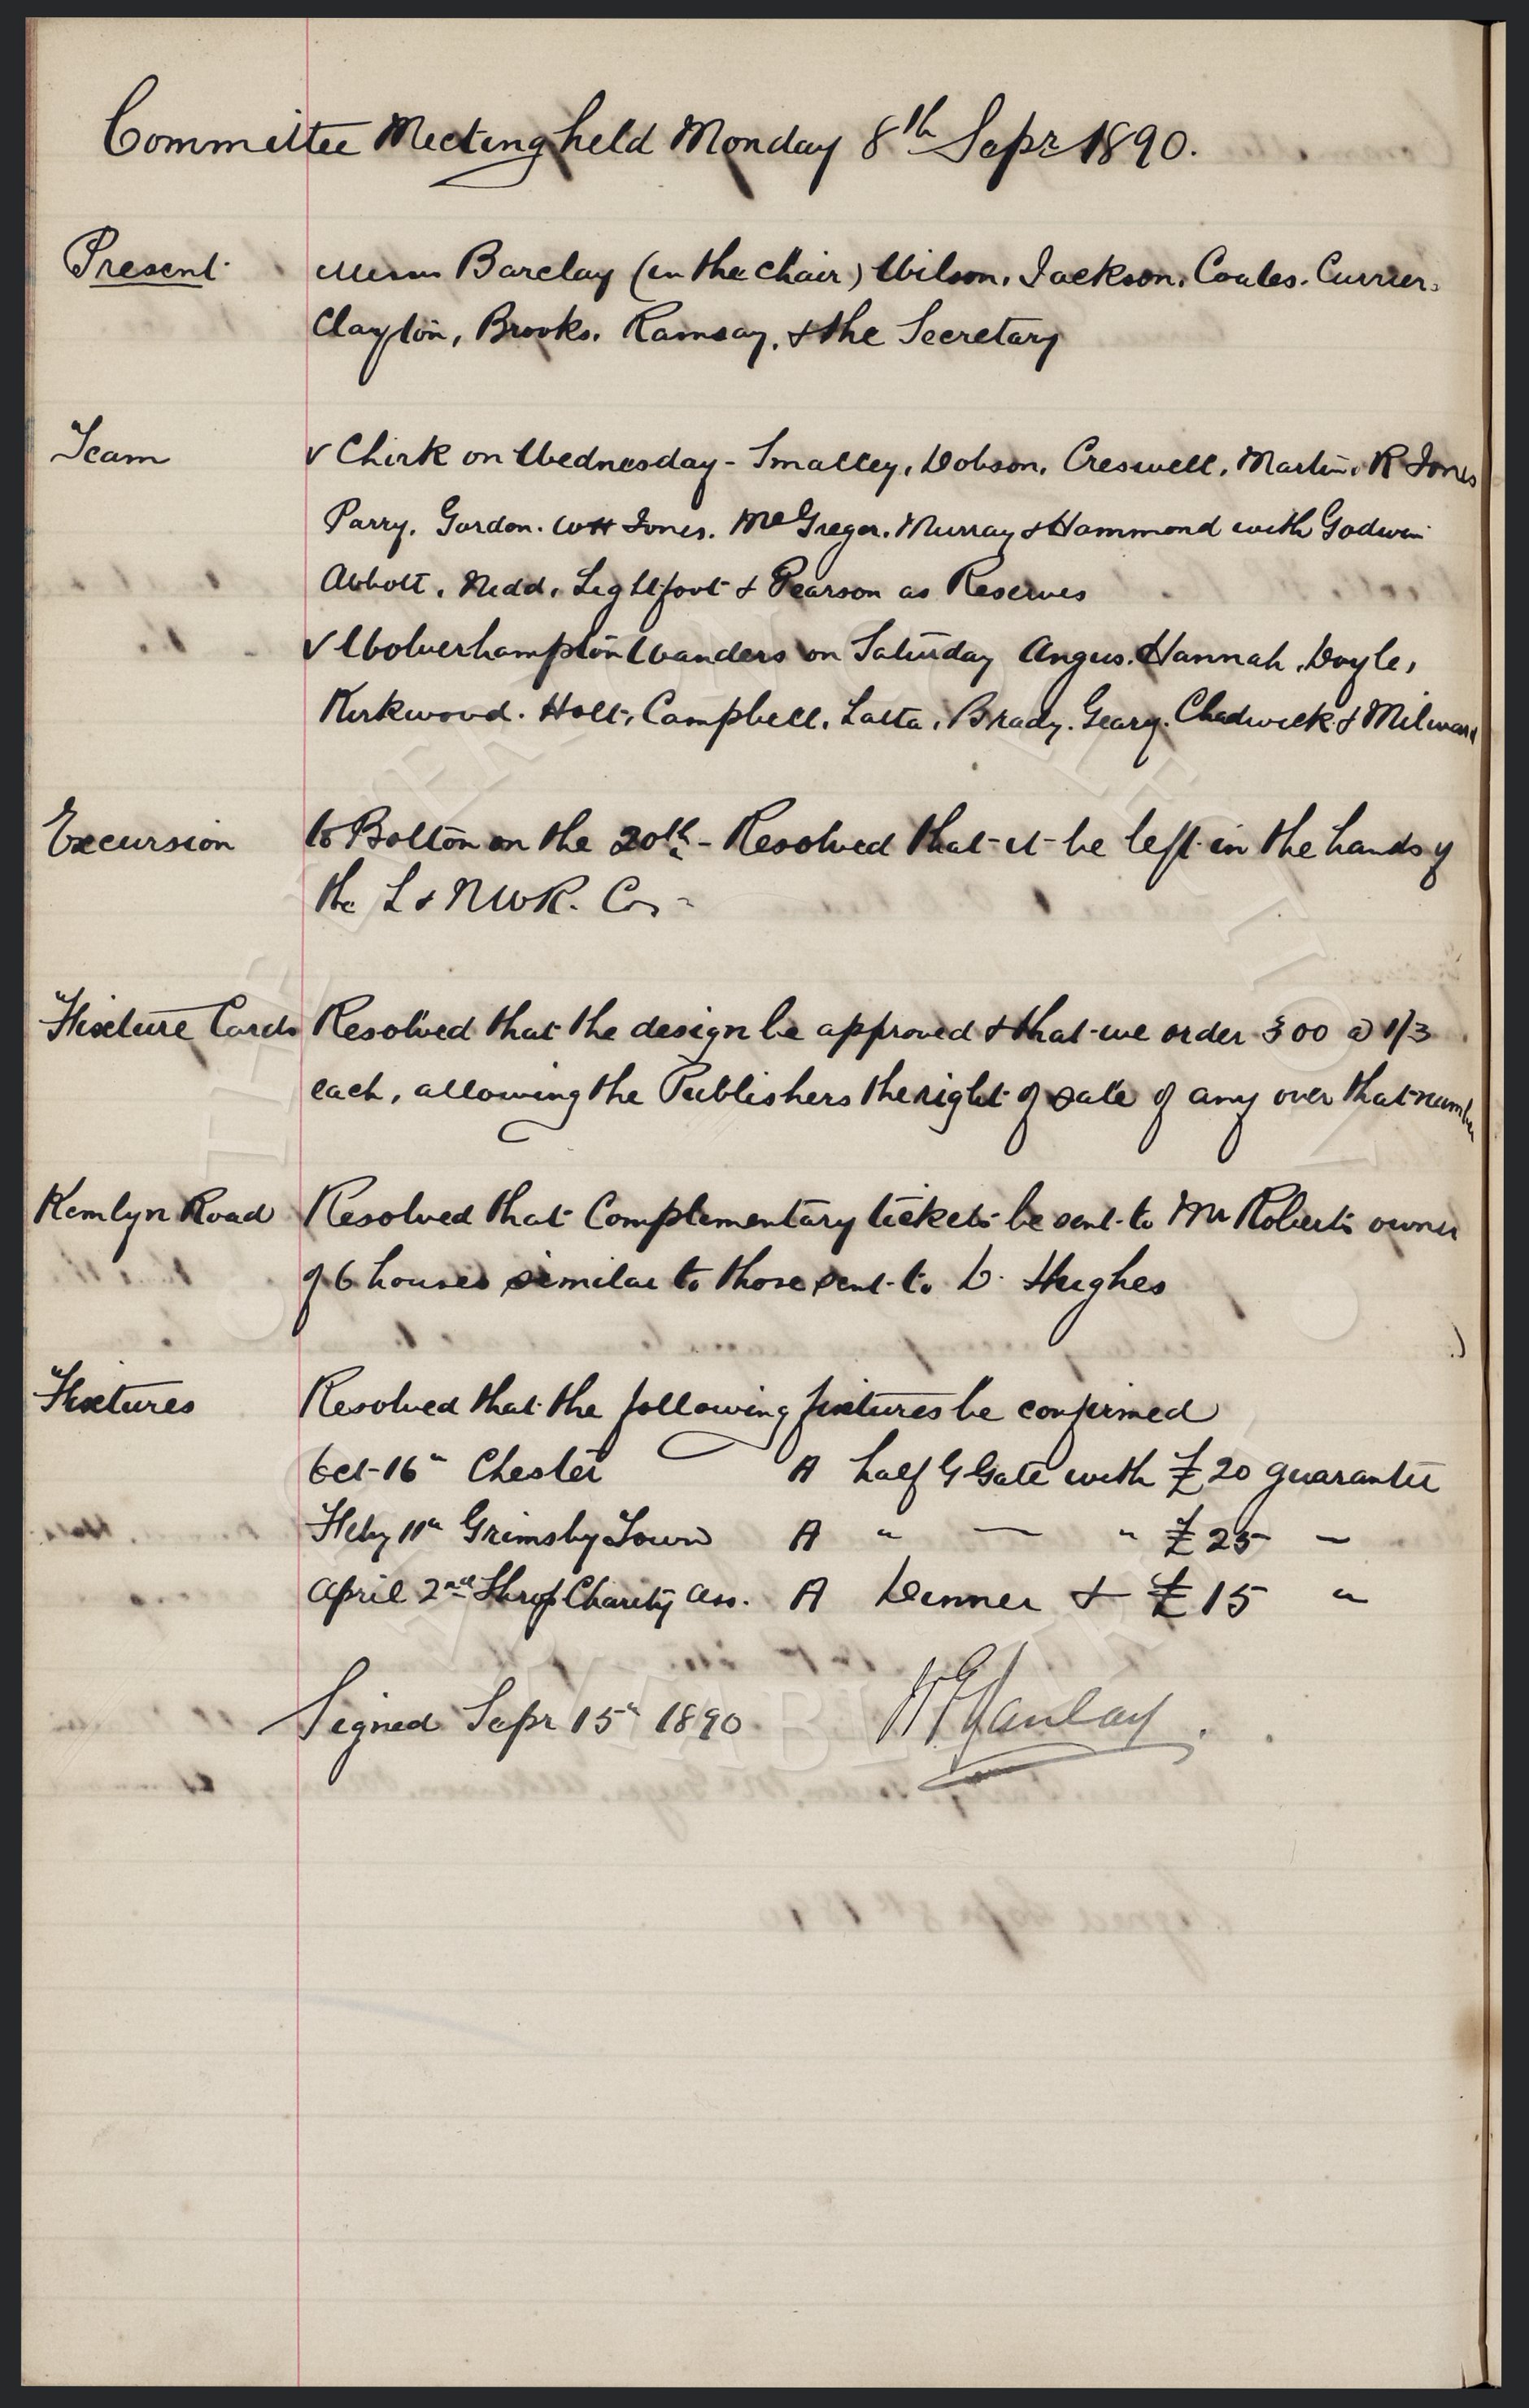 Committee Meeting held Monday 8th Sepr 1890.
Present Messrs Barclay (in the chair) Wilson, Jackson, Coates, Currier,
Clayton, Brooks, Ramsay, & the Secretary
Team v Chirk on Wednesday - Smalley, Dobson, Creswell, Martin, R Jones
Parry, Gordon, WH Jones, McGregor, Murray & Hammond with Godwin
Abbott, Nidd, Lightfoot & Pearson as Reserves
v Wolverhampton Wanders on Saturday Angus, Hannah, Doyle,
Kirkwood, Holt, Campbell, Latta, Brady, Geary, Chadwick & Milward
Excursion to Bolton on the 20th - Resolved that it be left in the hands of
the L & NWR. Co
Fixture Cards Resolved that the design be approved & that we order 300 @ 1/3
each, allowing the Publishers the right of sale of any over that number
Kemlyn Road Resolved that Complementary tickets be sent to Mr Roberts owner
of 6 houses similar to those sent to D. Hughes
Fixtures Resolved that the following fixtures be confirmed
Oct 16" Chester A half G Gate with £20 guarantee
Feby 11" Grimsby Town A " — " £25 —
April 2nd Shrop Charity Ass. A Dinner & £15 "
Signed Sepr 15" 1890